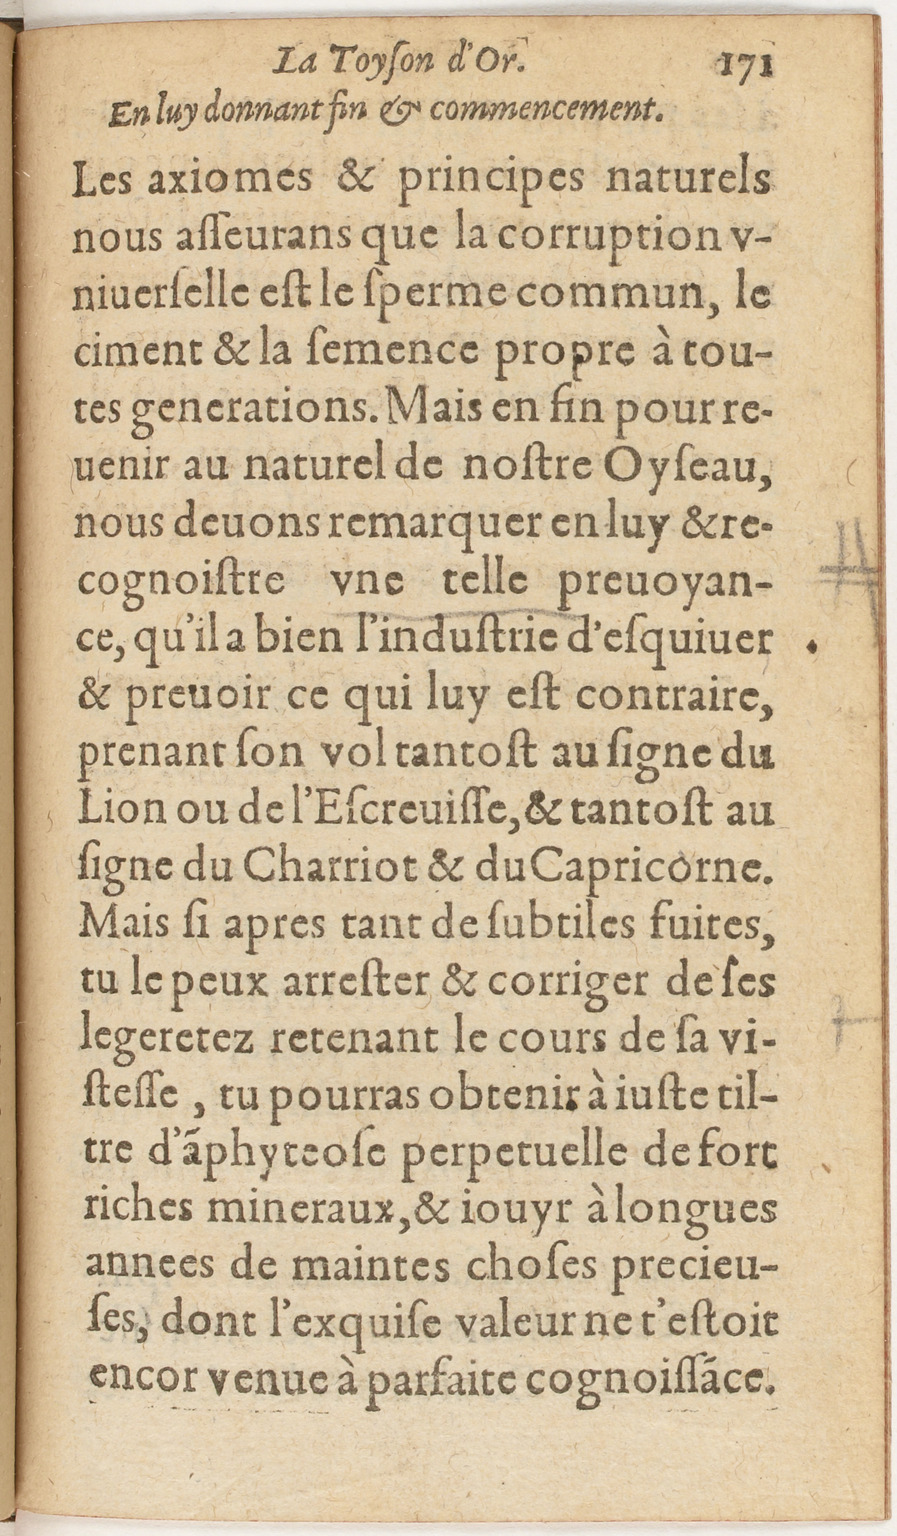 La Toyſon d'Or. 171
En luy donnant fin & commencement.
Les axiomes & principes naturels
nous aſſeurans que la corruption v-
niuerſelle eſt le ſperme commun, le
ciment & la ſemence propre à tou-
tes generations. Mais en fin pour re-
uenir au naturel de noſtre Oyſeau,
nous deuons remarquer en luy & re-
cognoiſtre vne telle preuoyan-
ce, qu'il a bien l'induſtrie d'eſquiuer
& preuoir ce qui luy eſt contraire,
prenant ſon vol tantoſt au ſigne du
Lion ou de l'Eſcreuiſſe, & tantoſt au
ſigne du Charriot & du Capricorne.
Mais ſi apres tant de ſubtiles fuites,
tu le peux arreſter & corriger de ſes
legeretez retenant le cours de ſa vi-
ſteſſe, tu pourras obtenir à iuſte til-
tre d'ãphyteoſe perpetuelle de fort
riches mineraux, & iouyr à longues
annees de maintes choſes precieu-
ſes, dont l'exquiſe valeur ne t'eſtoit
encor venue à parfaite cognoiſſãce.